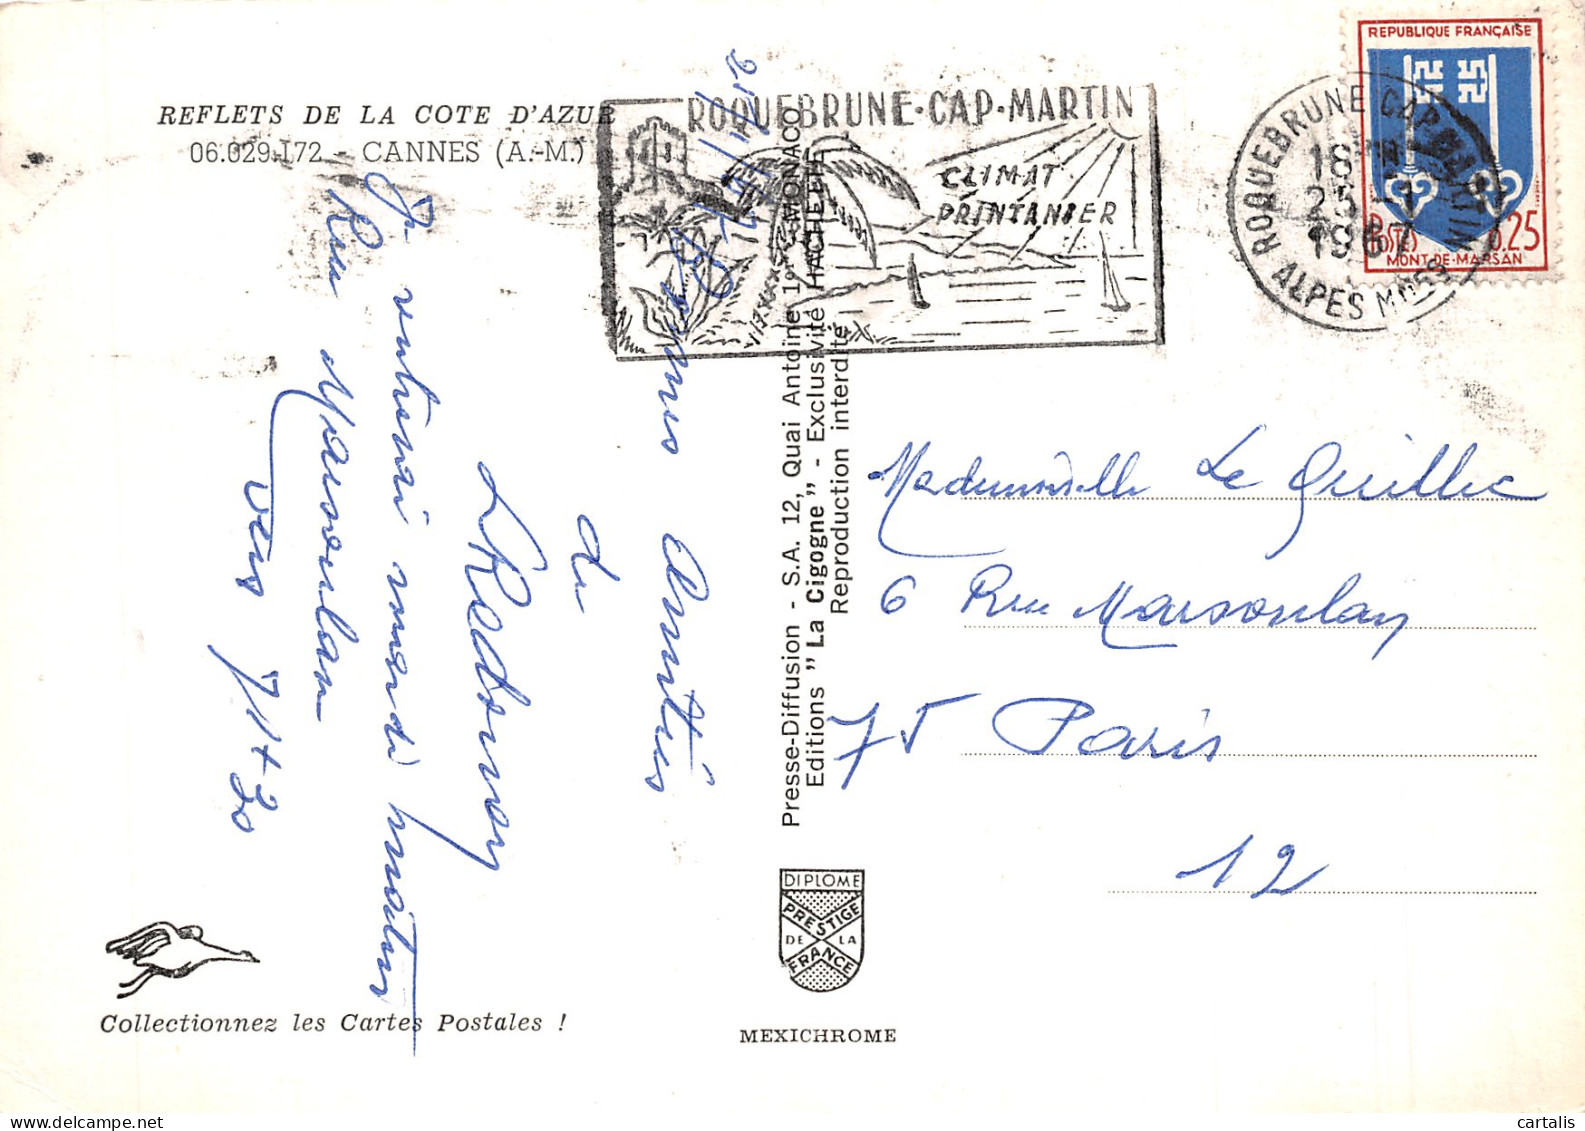 REFLETS DE LA COTE D'AZUR
06.029.172 - CANNES (A.-M.)
ROQUEBRUNE-CAP-MARTIN
CLIMAT
PRINTANIER
ROQUEBRUNE CAP MARTIN
18
25 -1
1967
ALPES MMES
REPUBLIQUE FRANÇAISE
POSTES
0.25
MONT-DE-MARSAN
Bonnes Amitiés
du
Je rentrerai mercredi matin
Rue Marsoulan
vers 7h+30
Presse-Diffusion - S.A. 12, Quai Antoine 1er - MONACO
Editions "La Cigogne" - Exclusivité HACHETTE
Reproduction interdite
Mademoiselle Le Quillec
6 Rue Marsoulan
75 Paris
12
DIPLOME
PRESTIGE
DE LA
FRANCE
Collectionnez les Cartes Postales !
MEXICHROME
cartalis